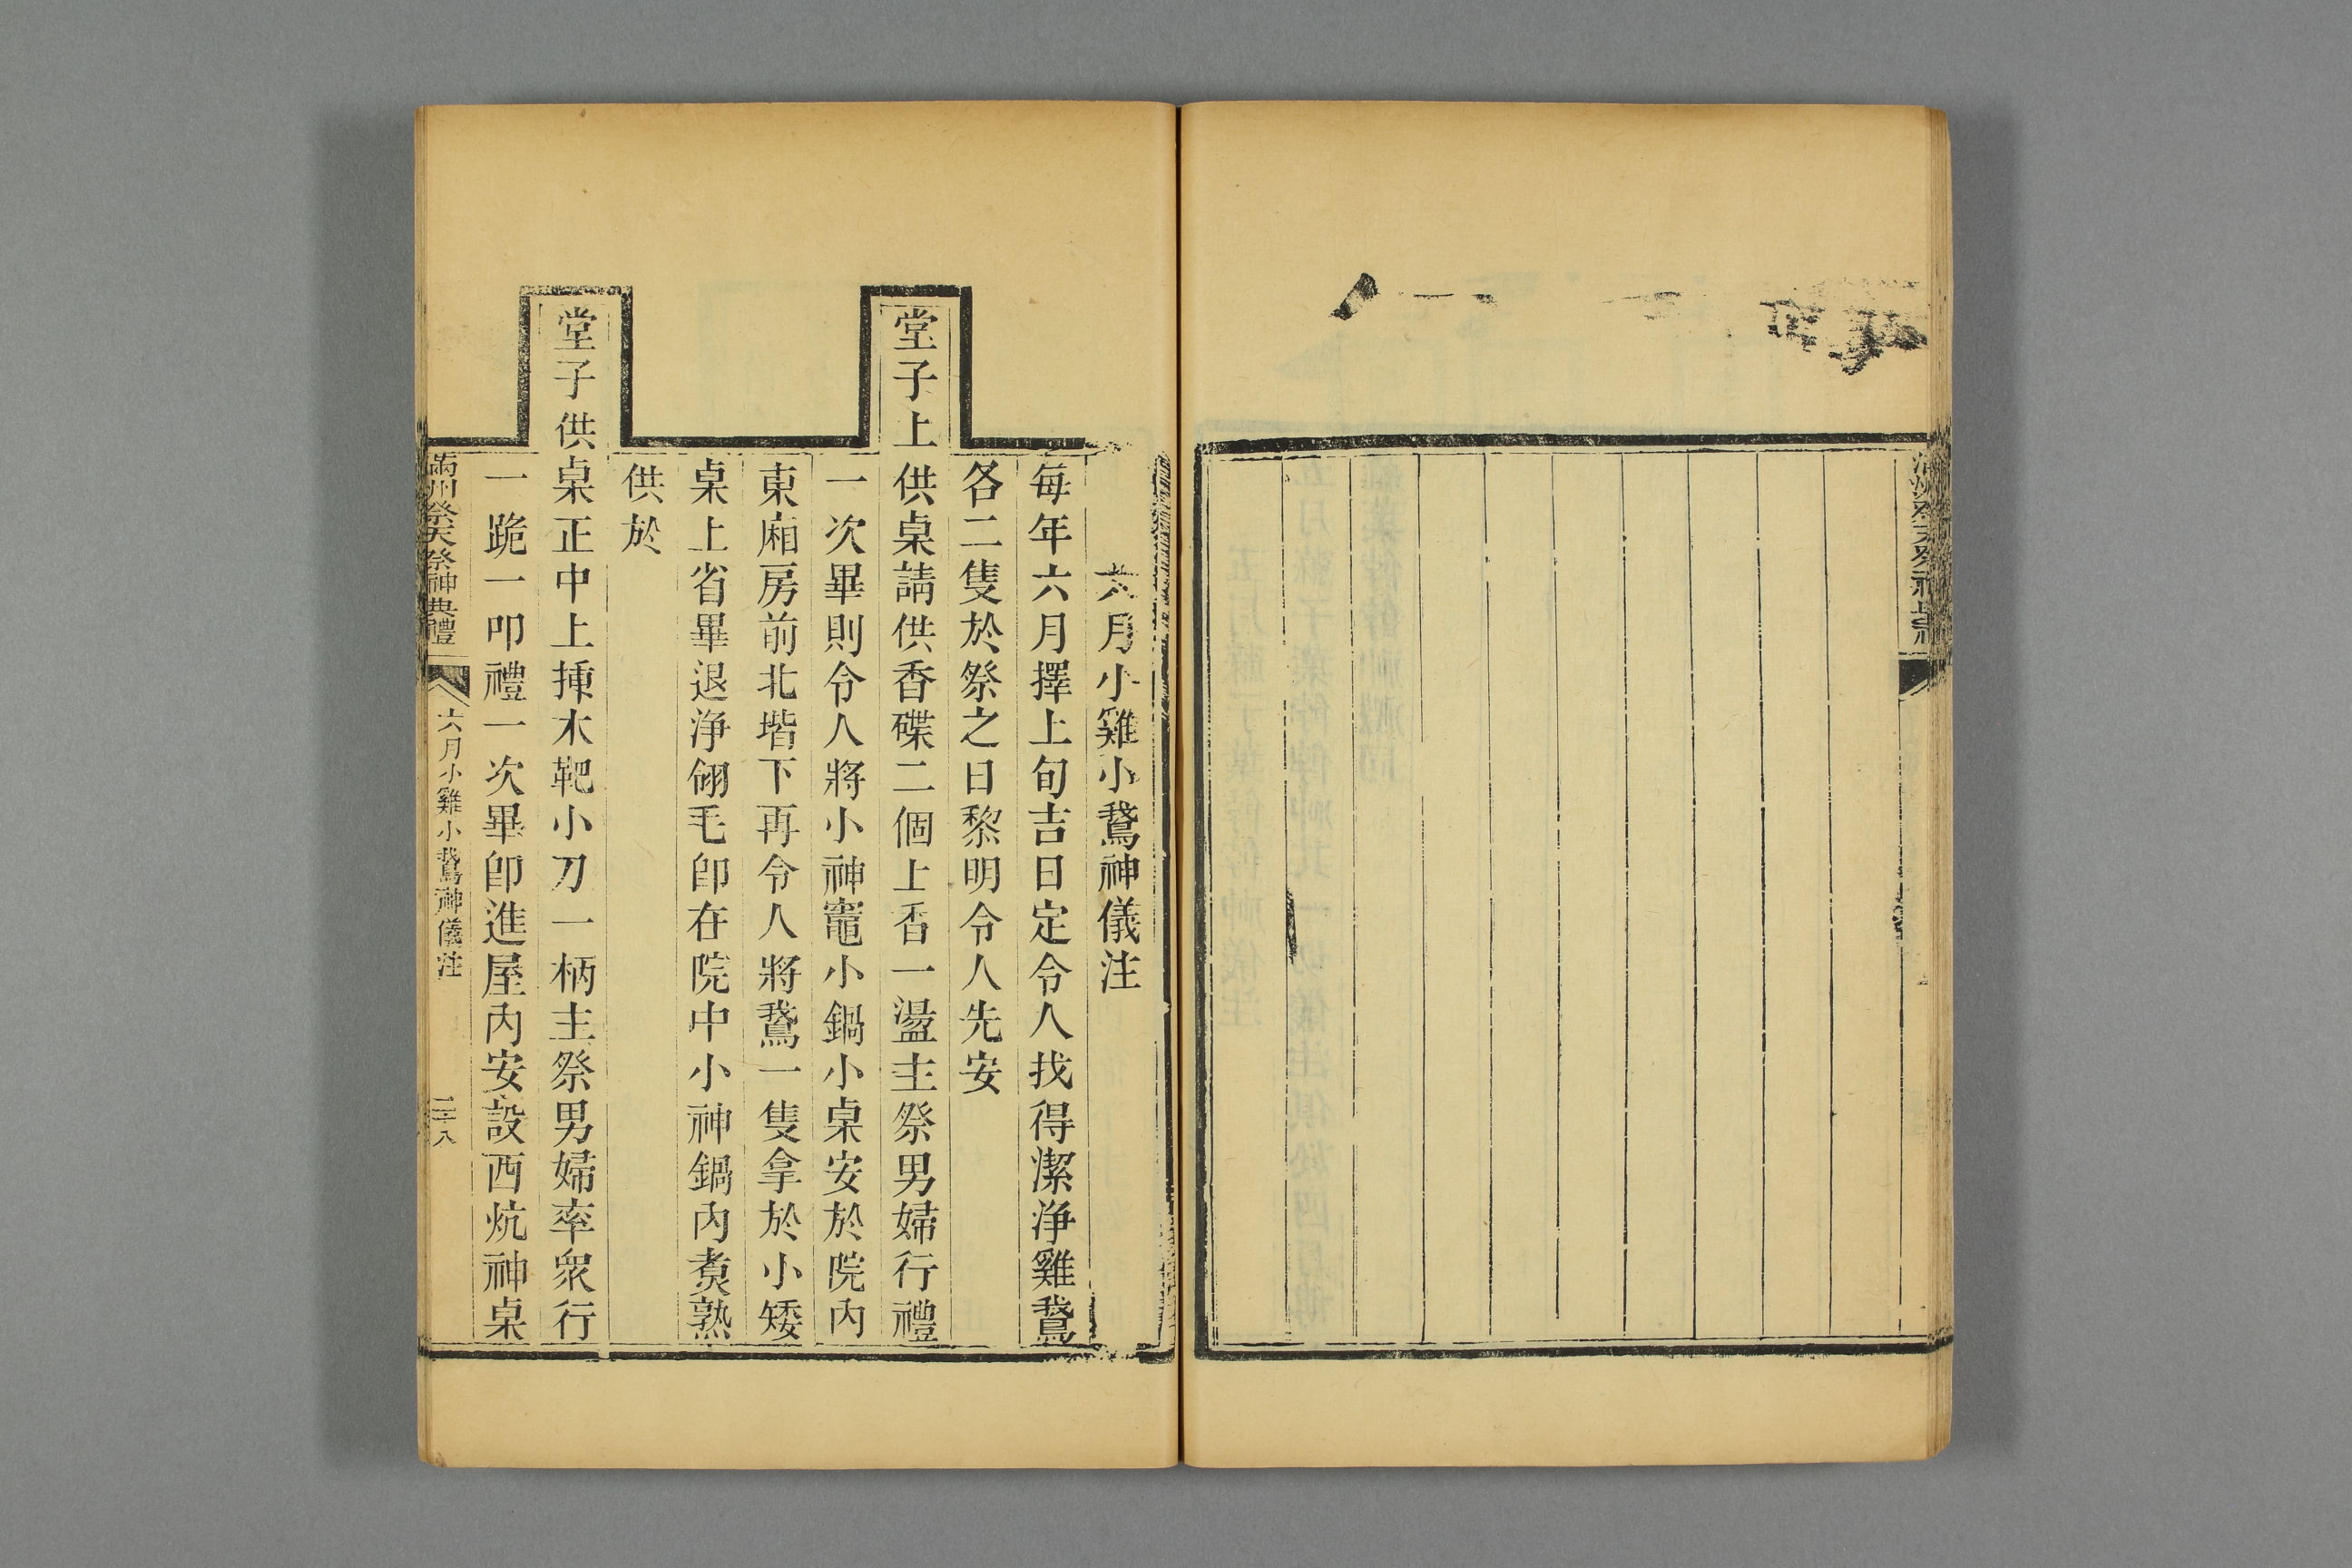 六月小雞小鵞神儀注
每年六月擇上旬吉日定令人找得潔淨雞鵞
各二隻於祭之日黎明令人先安
堂子上供桌請供香碟二個上香一盪主祭男婦行禮
一次畢則令人將小神竈小鍋小桌安於院內
東廂房前北堦下再令人將鵞一隻拿於小矮
桌上省畢退淨翎毛卽在院中小神鍋內煑熟
供於
堂子供桌正中上揷木靶小刀一柄主祭男婦率衆行
一跪一叩禮一次畢卽進屋內安設西炕神桌
滿州祭天祭神典禮
六月小雞小鵞神儀注
二十八